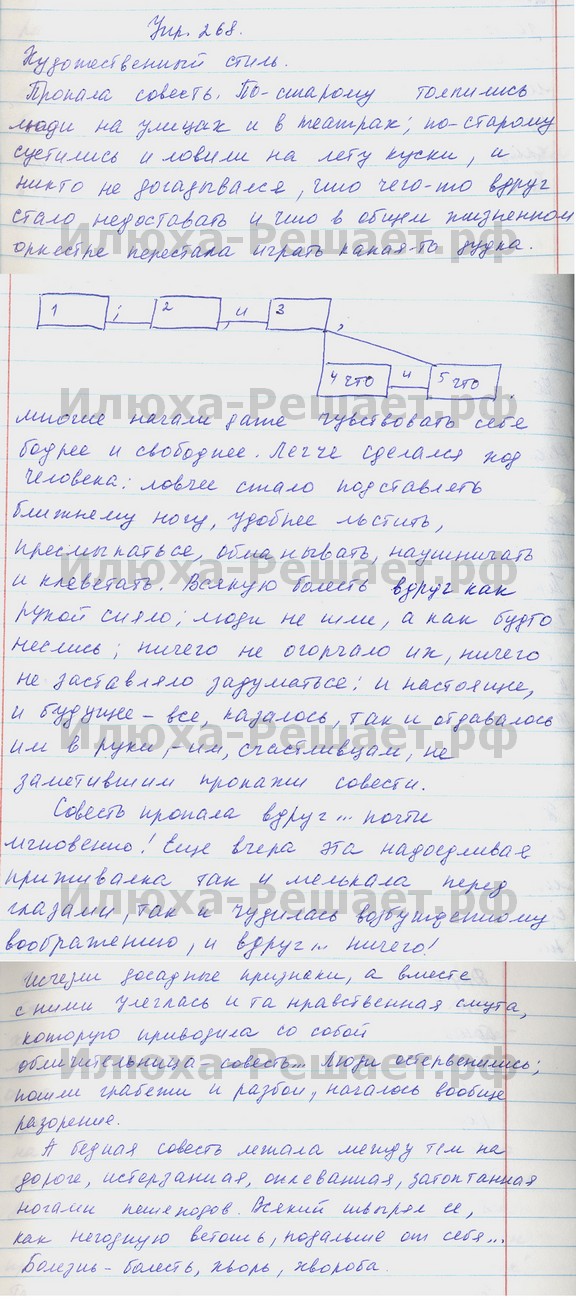 Упр. 268.
Художественный стиль.
Пропала совесть. По-старому толпились
люди на улицах и в театрах; по-старому
суетились и ловили на лету куски, и
никто не догадывался, что чего-то вдруг
стало недоставать и что в общем жизненном
оркестре перестала играть какая-то дудка.
Илюха-Решает.рф
1 ; 2 , и 3 ,
4 что и 5 что .
Илюха-Решает.рф
многие начали даже чувствовать себя
бодрее и свободнее. Легче сделался ход
человека: ловчее стало подставлять
ближнему ногу, удобнее льстить,
пресмыкаться, обманывать, наушничать
Илюха-Решает.рф
и клеветать. Всякую болесть вдруг как
рукой сняло; люди не шли, а как будто
неслись; ничего не огорчало их, ничего
не заставляло задуматься; и настоящее,
и будущее – все, казалось, так и отдавалось
Илюха-Решает.рф
им в руки, – им, счастливцам, не
заметившим пропажи совести.
Совесть пропала вдруг... почти
мгновенно! Еще вчера эта надоедливая
приживалка так и мелькала перед
Илюха-Решает.рф
глазами, так и чудилась возбужденному
воображению, и вдруг... ничего!
Исчезли досадные признаки, а вместе
с ними улеглась и та нравственная смута,
которую приводила со собой
обличительница совесть... Люди остервенились;
пошли грабежи и разбои, началось вообще
разорение.
А бедная совесть лежала между тем на
дороге, истерзанная, оплеванная, затоптанная
ногами пешеходов. Всякий швырял ее,
как негодную ветошь, подальше от себя...
Болезнь – болесть, хворь, хвороба.